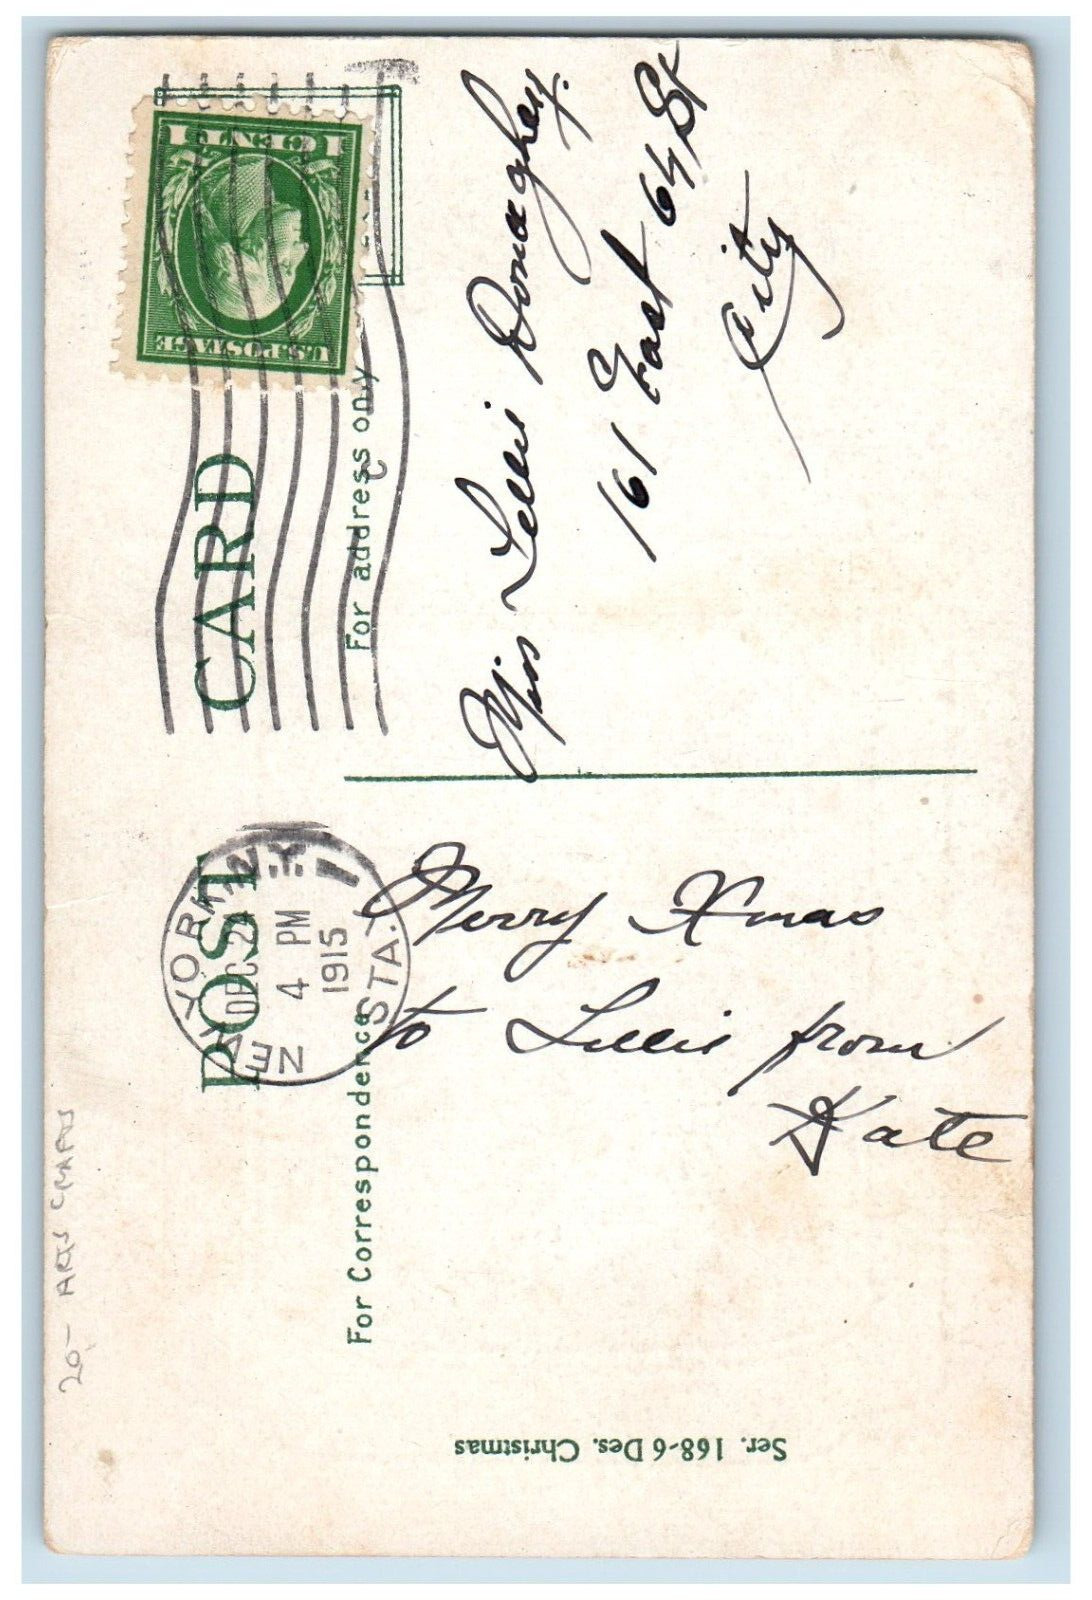 POST CARD
1 CENT 1
U.S. POSTAGE
NEW YORK, N.Y.
DEC 2
4 PM
1915
STA.
For Correspondence
For address only
Merry Xmas
to Lillis from
Kate
Miss Lillis Donaghey.
161 East 64 St
City
Ser. 168-6 Des. Christmas
20- ARTS CRAFTS